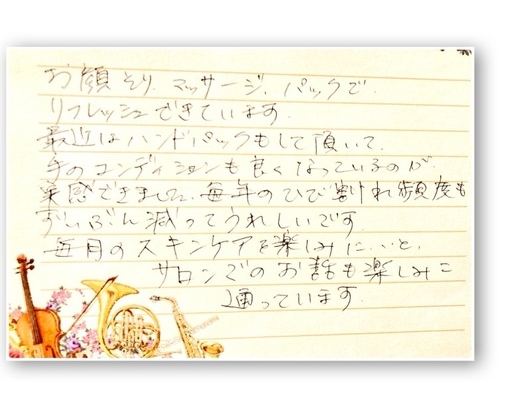 お顔そり、マッサージ、パックで
リフレッシュできています。
最近はハンドパックもして頂いて、
手のコンディションも良くなっているのが
実感できました。毎年のひび割れ頻度も
ずいぶん減ってうれしいです。
毎月のスキンケアを楽しみに
サロンでのお話も楽しみに
通っています。